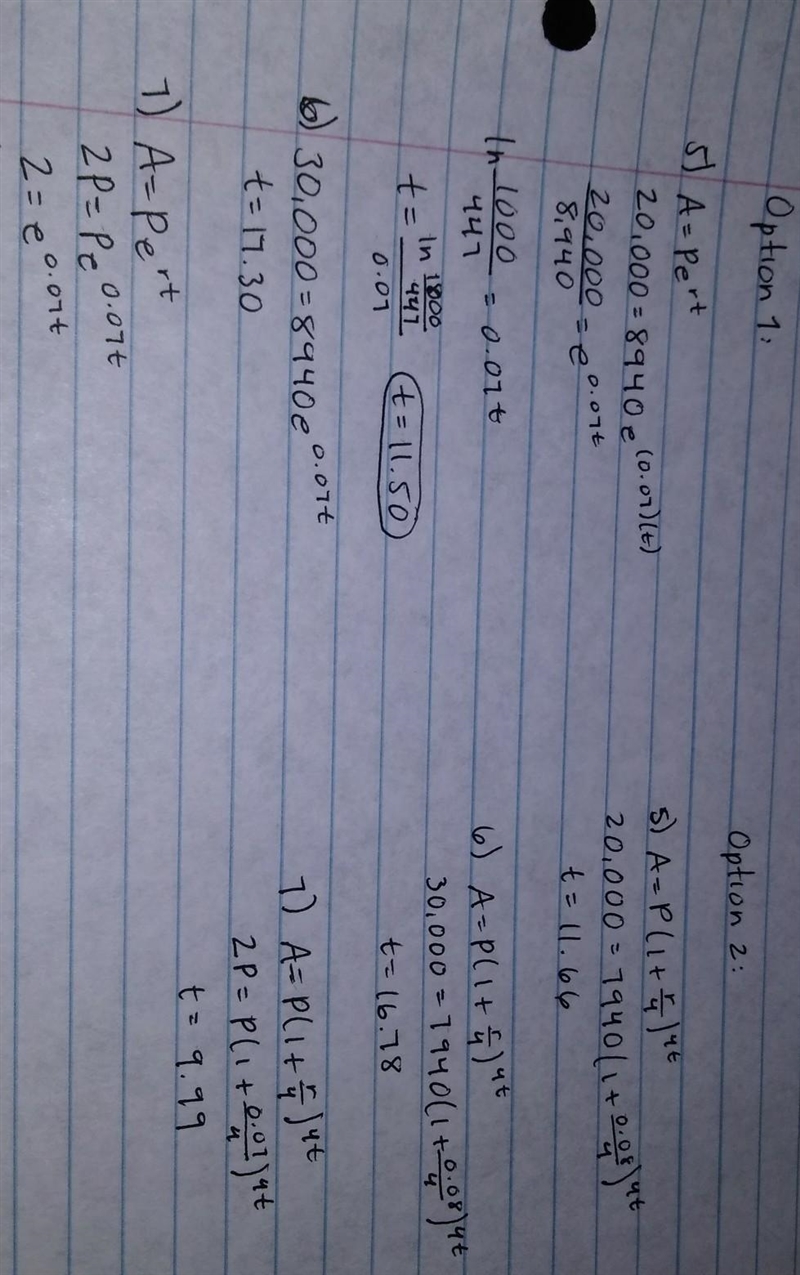 Option 1:
5) A = Pe^rt
20,000 = 8940 e^(0.07)(t)
20,000/8,940 = e^0.07t
ln 1000/447 = 0.07t
t = ln 1000/447 / 0.07 t = 11.50
6) 30,000 = 8940e^0.07t
t = 17.30
7) A = Pe^rt
2P = Pe^0.07t
2 = e^0.07t
Option 2:
5) A = P(1 + r/4)^4t
20,000 = 7940(1 + 0.08/4)^4t
t = 11.66
6) A = P(1 + r/4)^4t
30,000 = 7940(1 + 0.08/4)^4t
t = 16.78
7) A = P(1 + r/4)^4t
2P = P(1 + 0.07/4)^4t
t = 9.99